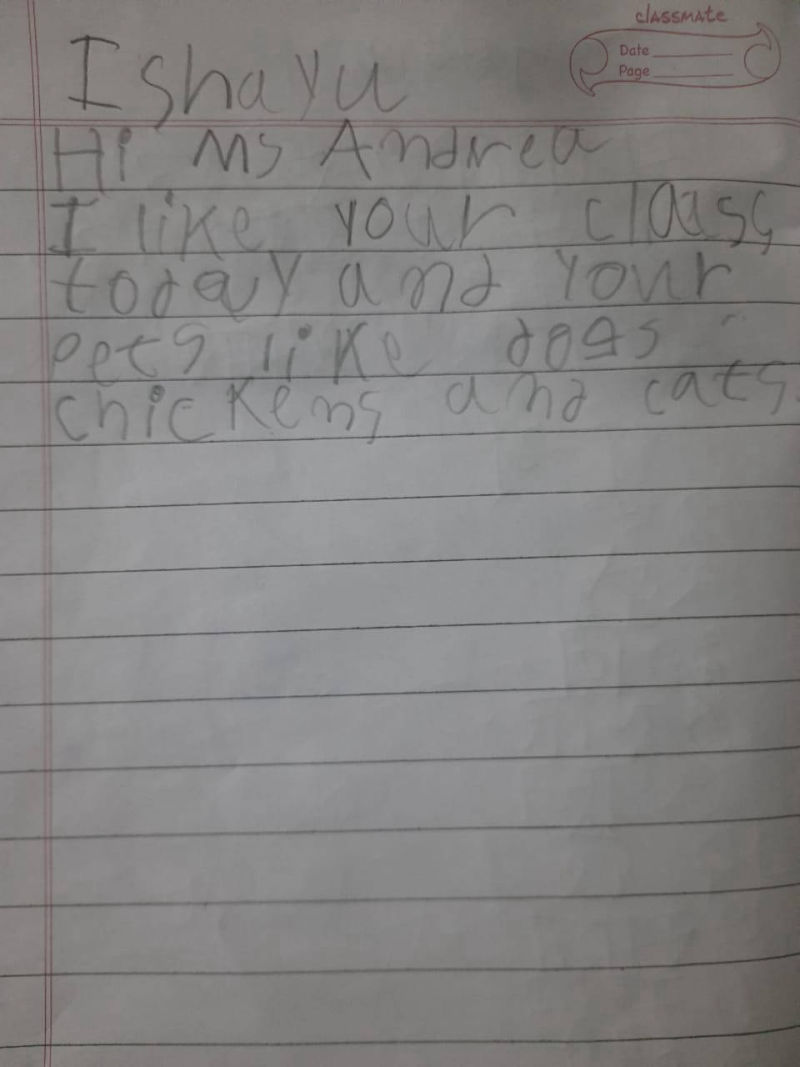 classmate
Date
Page
Ishayu
Hi Ms Andrea
I like your class
today and your
pets like dogs
chickens and cats.